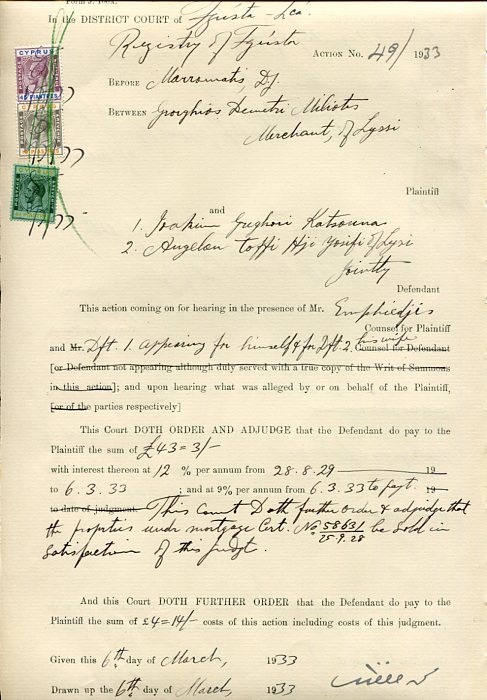 Form J. 100x.
In the DISTRICT COURT of Fgusta - Lca
Registry of Fgusta
ACTION No. 49/ 1933
BEFORE Marromatis, DJ
BETWEEN Georghios Demetri Miliotis
Merchant, of Lyssi
Plaintiff
and
1. Ioakim Greghori Katsouna
2. Angelou Toffi Hji Yosifi of Lysi
Jointly
Defendant
This action coming on for hearing in the presence of Mr. Emphiedjis
Counsel for Plaintiff
and Mr. Dft. 1. appearing for himself & for Dft 2. his wife Counsel for Defendant
[or Defendant not appearing although duly served with a true copy of the Writ of Summons
in this action]; and upon hearing what was alleged by or on behalf of the Plaintiff,
[or of the parties respectively]
This Court DOTH ORDER AND ADJUDGE that the Defendant do pay to the
Plaintiff the sum of £43=3/-
with interest thereon at 12 % per annum from 28.8.29 19
to 6.3.33 ; and at 9% per annum from 6.3.33 to payt. 19
to date of judgment. This Court Doth further order & adjudge that
the properties under mortgage Cert. No 58631 be sold in
25.9.28
satisfaction of this judgt.
And this Court DOTH FURTHER ORDER that the Defendant do pay to the
Plaintiff the sum of £4=14/- costs of this action including costs of this judgment.
Given this 6th day of March, 1933
Drawn up the 6th day of March, 1933
CYPRUS
45 PIASTRES